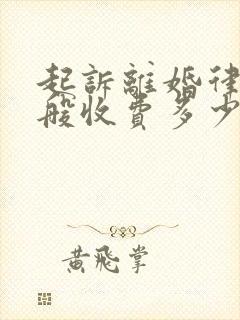 起訴離婚律
般收費多少
黃飛掌